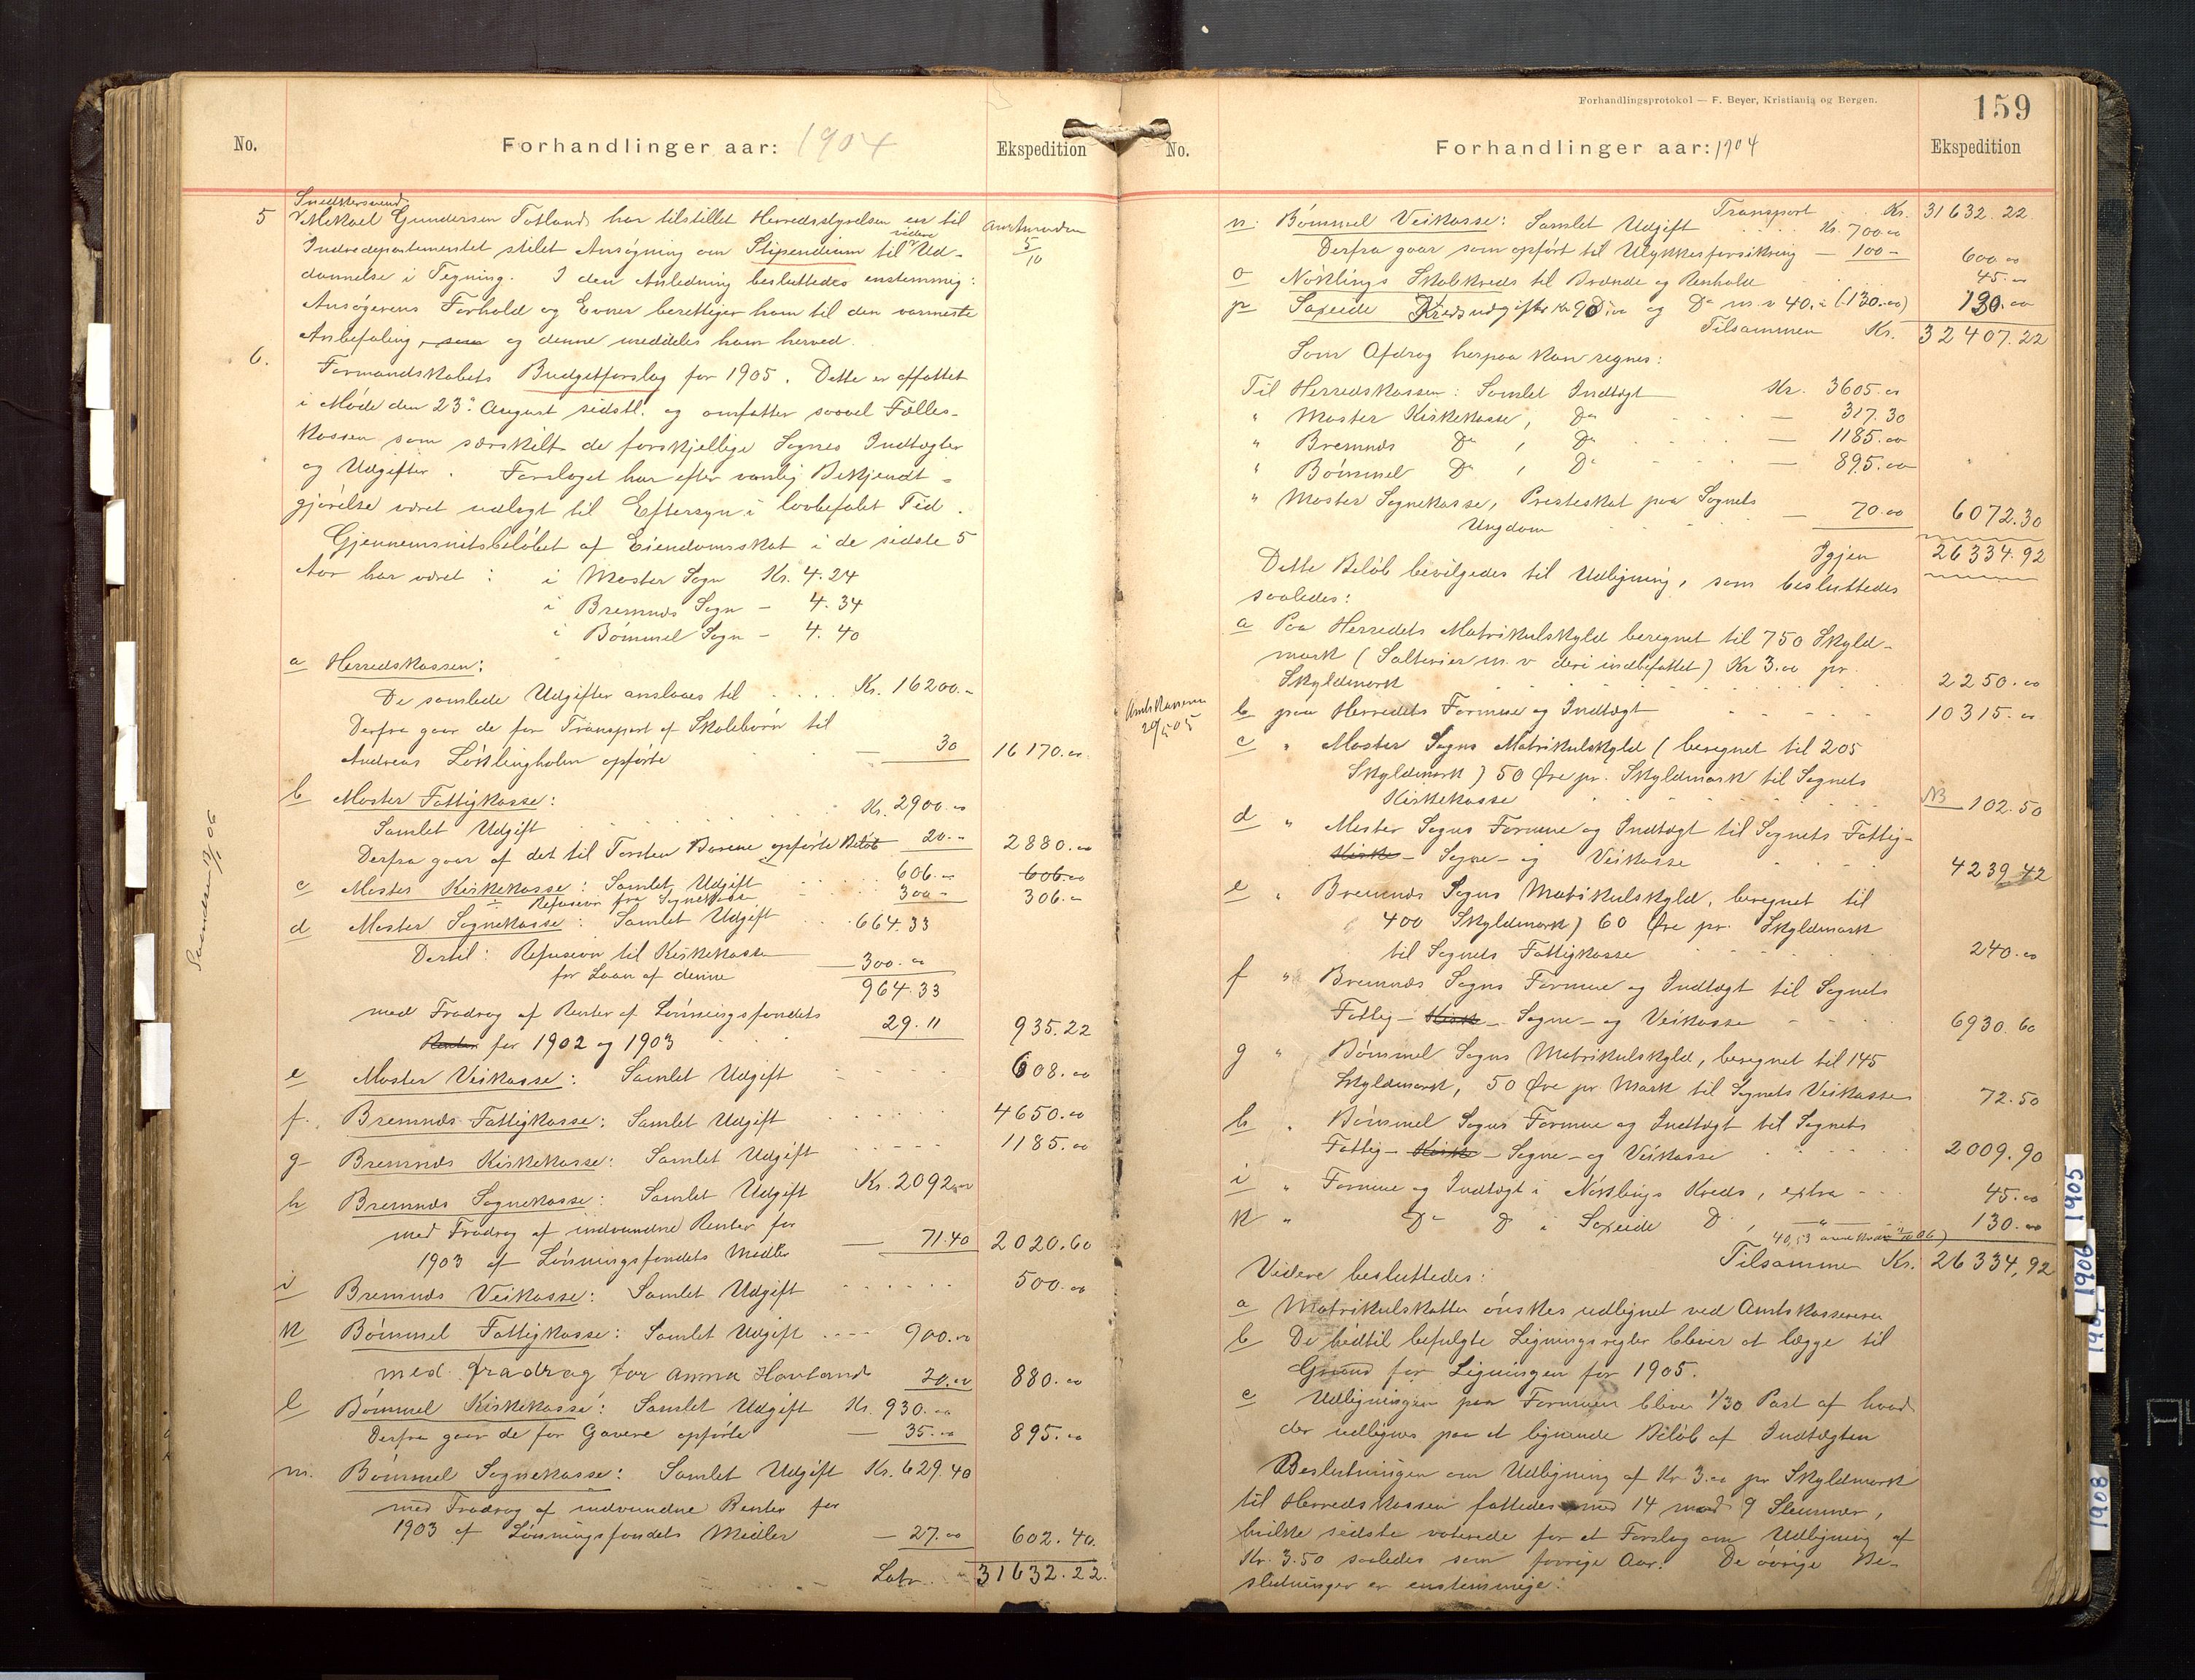 No.
Forhandlinger aar: 1904
Ekspedition
Snedkersvend
5 Mikael Gundersen Totland har tilstillet Herredsstyrelsen en til
Amtmanden 5/10
Indredepartementet stilet Ansøgning om Stipendium til videre Ud-
dannelse i Tegning. I den Anledning besluttedes enstemmig:
Ansøgerens Forhold og Evner berettiger ham til den varmeste
Anbefaling, som og denne meddeles ham herved.
6. Formandskabets Budgetforslag for 1905. Dette er affattet
i Møde den 23. August sidstl. og omfatter saavel Fælles-
kassen som særskilt de forskjellige Sognes Indtægter
og Udgifter. Forslaget har efter vanlig Bekjendt-
gjørelse været udlagt til Eftersyn i lovbefalet Tid.
Gjennemsnitsbeløbet af Eiendomsskat i de sidste 5
Aar har været: i Moster Sogn Kr. 4.24
i Bremnes Sogn - 4.34
i Bømmel Sogn - 4.40
a Herredskassen:
De samlede Udgifter anslaaes til .... Kr. 16200.-
Derfra gaar de for Transport af Skolebørn til
Andreas Løklingholm opførte — 30 16170.00
b Moster Fattigkasse:
Samlet Udgift Kr. 2900.00
Derfra gaar af det til Torsten opførte Beløb 20.- 2880.00
c Moster Kirkekasse: Samlet Udgift 606.- 606.00
÷ Refusion fra Sognekasse 300.- 306.-
d Moster Sognekasse: Samlet Udgift .. 664.33
Dertil: Refusion til Kirkekasse
for Laan af denne — 300.00
964.33
med Fradrag af Renter af Lønningsfondets
Renter for 1902 og 1903 29.11 935.22
e Moster Veikasse: Samlet Udgift 608.00
f. Bremnes Fattigkasse: Samlet Udgift 4650.00
g Bremnes Kirkekasse: Samlet Udgift 1185.00
h Bremnes Sognekasse: Samlet Udgift Kr. 2092.00
med Fradrag af indvundne Renter for
1903 af Lønningsfondets Midler — 71.40 2020.60
i Bremnes Veikasse: Samlet Udgift 500.00
k Bømmel Fattigkasse: Samlet Udgift .... 900.00
med fradrag for Anna Hovland 20.00 880.00
l Bømmel Kirkekasse: Samlet Udgift Kr. 930.00
Derfra gaar de for Gavere opførte — 35.00 895.00
m. Bømmel Sognekasse: Samlet Udgift Kr. 629.40
med Fradrag af indvundne Renter for
1903 af Lønningsfondets Midler — 27.00 602.40.
Latr. 31632.22.
Forhandlingsprotokol — F. Beyer, Kristiania og Bergen.
159
No.
Forhandlinger aar: 1904
Ekspedition
Transport Kr. 31632.22.
n. Bømmel Veikasse: Samlet Udgift Kr. 700.00
Derfra gaar som opført til Ulykkesforsikring — 100- 600.00
o Nöklings Skolekreds til Brænde og Renhold 45.00
p Sapeide Kredsudgifter Kr 90.00 og Do m.v 40.- (130.00) 130.00
Tilsammen Kr. 32407.22
Som Afdrag herpaa kan regnes:
Til Herredskassen: Samlet Indtægt Kr. 3605.00
" Moster Kirkekasse, Do — 317.30
" Bremnes Do , Do — 1185.00
" Bømmel Do , Do — 895.00
" Moster Sognekasse, Presteskat paa Sognets
Ungdom — 70.00 6072.30
Igjen 26334.92
Dette Beløb bevilgedes til Udligning, som besluttedes
saaledes:
a Paa Herredets Matrikulskyld beregnet til 750 Skyld-
mark (Salterier m.v deri indbefattet) Kr 3.00 pr.
Skyldmark 2250.00
Amtskasseren
b paa Herredets Formue og Indtægt 10315.00
c " Moster Sogns Matrikulskyld (beregnet til 205
Skyldmark) 50 Øre pr. Skyldmark til Sognets
Kirkekasse NB 102.50
d " Moster Sogns Formue og Indtægt til Sognets Fattig-
Kirke- Sogne- og Veikasse 4239.42
e " Bremnes Sogns Matrikulskyld, beregnet til
400 Skyldmark) 60 Øre pr. Skyldmark
til Sognets Fattigkasse 240.00
f " Bremnes Sogns Formue og Indtægt til Sognets
Fattig- Kirke- Sogne- og Veikasse 6930.60
g " Bømmel Sogns Matrikulskyld, beregnet til 145
Skyldmark, 50 Øre pr. Mark til Sognets Veikasse 72.50
h " Bømmel Sogns Formue og Indtægt til Sognets
Fattig- Kirke- Sogne- og Veikasse 2009.90
i " Formue og Indtægt i Nöklings Kreds, extra 45.00
k " Do Do i Sapeide Do, — " — 130.00
Tilsammen Kr. 26334,92
Videre besluttedes:
a Matrikulskatten ønskes udlignet ved Amtskasserern
b De hidtil befulgte Ligningsregler bliver at lægge til
Grund for Ligningen for 1905.
c Udligningen paa Formuen bliver 1/30 Part af hvad
der udlignes paa et lignende Beløb af Indtægten
Beslutningen om Udligning af Kr 3.00 pr Skyldmark
til Herredskassen fattedes med 14 mod 9 Stemmer,
hvilke sidste voterede for et Forslag om Udligning af
Kr. 3.50 saaledes som forrige Aar. De øvrige Be-
slutninger er enstemmige.
1905
1906
1908